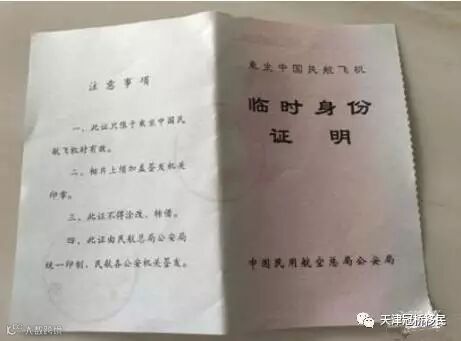 注意事项
一、此证只限于乘坐中国民
航飞机时有效。
二、相片上须加盖签发机关
印章。
三、此证不得涂改、转借。
四、此证由民航总局公安局
统一印制、民航各公安机关签发。
乘坐中国民航飞机
临时身份
证明
中国民用航空总局公安局
天津冠桥移民